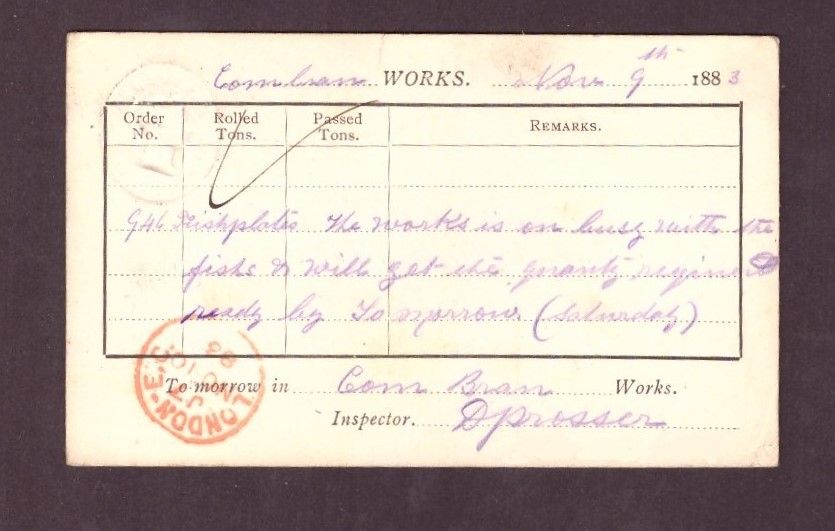 Combran WORKS. Nov 9th 1883
Order No. Rolled Tons. Passed Tons. REMARKS.
946 Fishplates The works is on busy with the
fish & will get the quanty required
ready by To morrow (Saturday)
To morrow in Com Bran Works.
Inspector. D Prosser
LONDON-E.C
NO 10
83